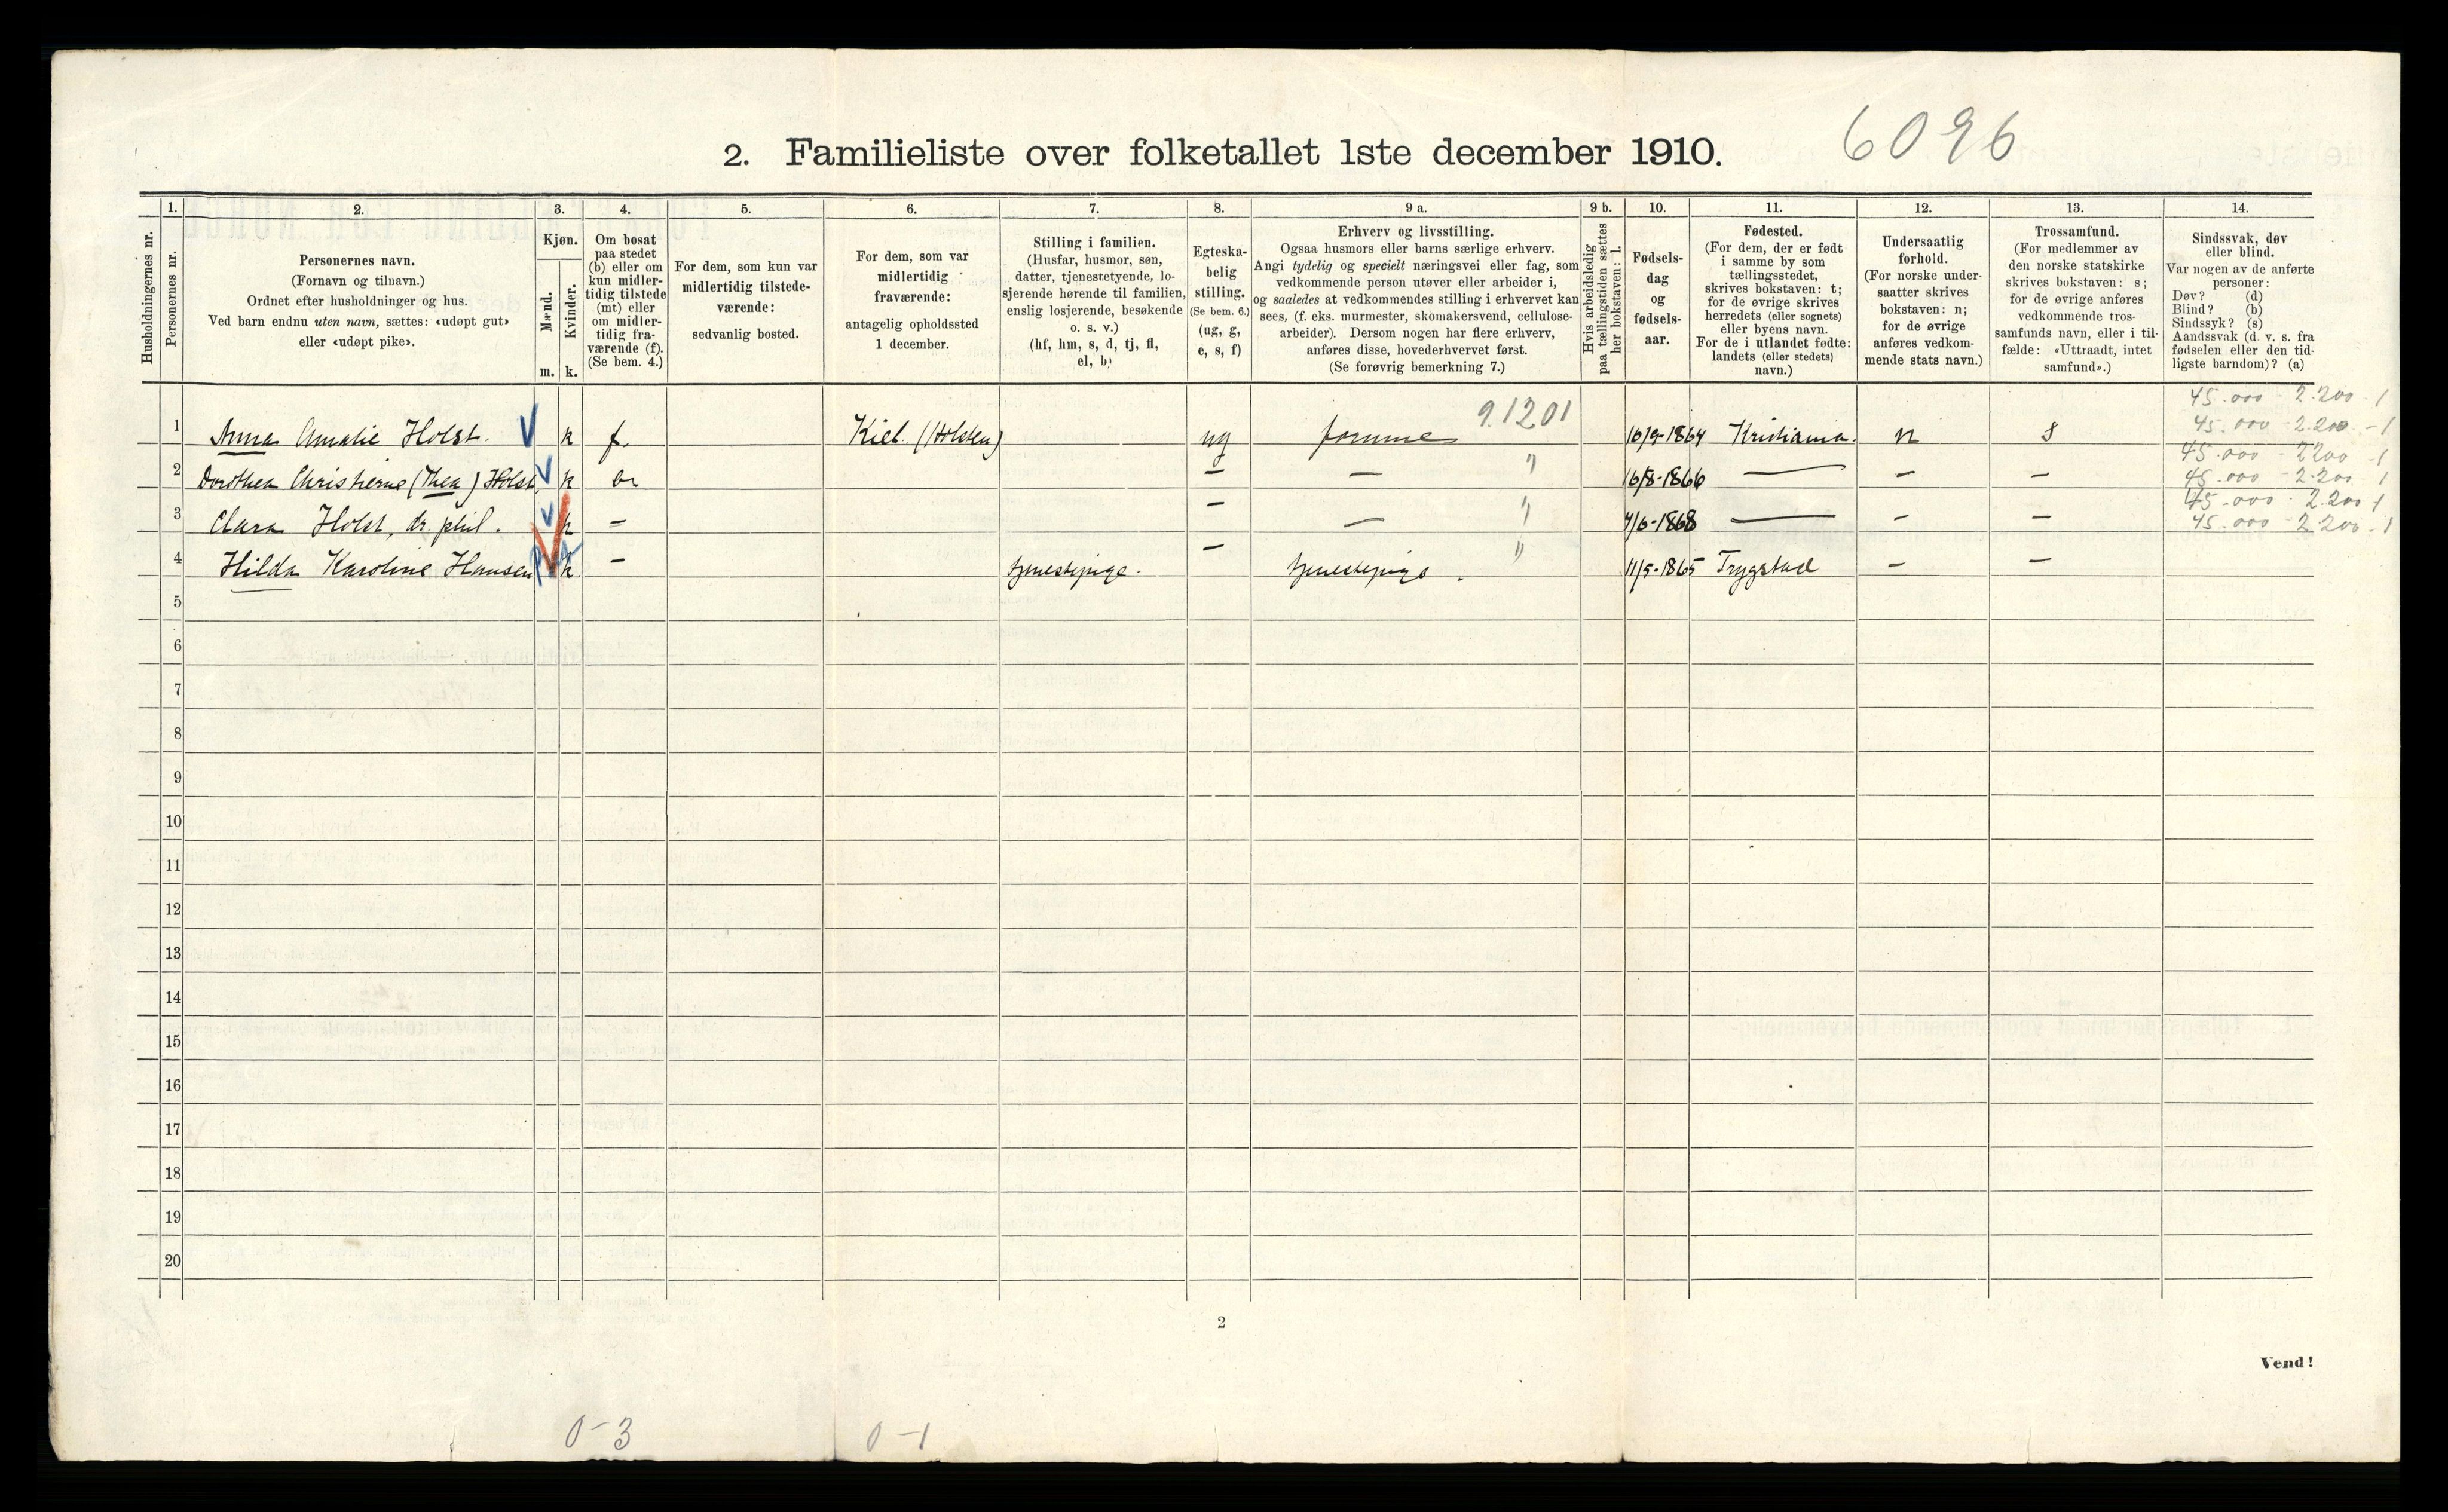 6096
2. Familieliste over folketallet 1ste december 1910.
Husholdningernes nr.
1.
Personernes nr.
2.
Personernes navn.
(Fornavn og tilnavn.)
Ordnet efter husholdninger og hus.
Ved barn endnu uten navn, sættes: «udøpt gut»
eller «udøpt pike».
3.
Kjøn.
Mænd.
Kvinder.
m.
k.
4.
Om bosat
paa stedet
(b) eller om
kun midler-
tidig tilstede
(mt) eller
om midler-
tidig fra-
værende (f).
(Se bem. 4.)
5.
For dem, som kun var
midlertidig tilstede-
værende:
sedvanlig bosted.
6.
For dem, som var
midlertidig
fraværende:
antagelig opholdssted
1 december.
7.
Stilling i familien.
(Husfar, husmor, søn,
datter, tjenestetyende, lo-
sjerende hørende til familien,
enslig losjerende, besøkende
o. s. v.)
(hf, hm, s, d, tj, fl,
el, b)
8.
Egteska-
belig
stilling.
(Se bem. 6.)
(ug, g,
e, s, f)
9 a.
Erhverv og livsstilling.
Ogsaa husmors eller barns særlige erhverv.
Angi tydelig og specielt næringsvei eller fag, som
vedkommende person utøver eller arbeider i,
og saaledes at vedkommendes stilling i erhvervet kan
sees, (f. eks. murmester, skomakersvend, cellulose-
arbeider). Dersom nogen har flere erhverv,
anføres disse, hovederhvervet først.
(Se forøvrig bemerkning 7.)
9 b.
Hvis arbeidsledig
paa tællingstiden sættes
her bokstaven: l.
10.
Fødsels-
dag
og
fødsels-
aar.
11.
Fødested.
(For dem, der er født
i samme by som
tællingsstedet,
skrives bokstaven: t;
for de øvrige skrives
herredets (eller sognets)
eller byens navn.
For de i utlandet fødte:
landets (eller stedets)
navn.)
12.
Undersaatlig
forhold.
(For norske under-
saatter skrives
bokstaven: n;
for de øvrige
anføres vedkom-
mende stats navn.)
13.
Trossamfund.
(For medlemmer av
den norske statskirke
skrives bokstaven: s;
for de øvrige anføres
vedkommende tros-
samfunds navn, eller i til-
fælde: «Uttraadt, intet
samfund».)
14.
Sindssvak, døv
eller blind.
Var nogen av de anførte
personer:
Døv? (d)
Blind? (b)
Sindssyk? (s)
Aandssvak (d. v. s. fra
fødselen eller den tid-
ligste barndom)? (a)
45.000 - 2.200 - 1
1 Anna Amalie Holst. k f. Kiel. (Holsten) ug 9.1201 10/9-1864 Kristiania. n s 45.000 - 2.200 - 1
45.000 - 2200 - 1
2 Dorothea Christierne (Thea) Holst, k — — " 16/8-1866 — — — 45.000 - 2.200 1
45.000 - 2.200 1
3 Clara Holst, dr. phil. k — — — " 4/6-1868 — — — 45.000 - 2.200 - 1
4 Hilda Karoline Hansen k — tjenestepige. — tjenestepige. " 11/5-1865 Trygstad — —
5
6
7
8
9
10
11
12
13
14
15
16
17
18
19
20
2
Vend!
0-3 0-1